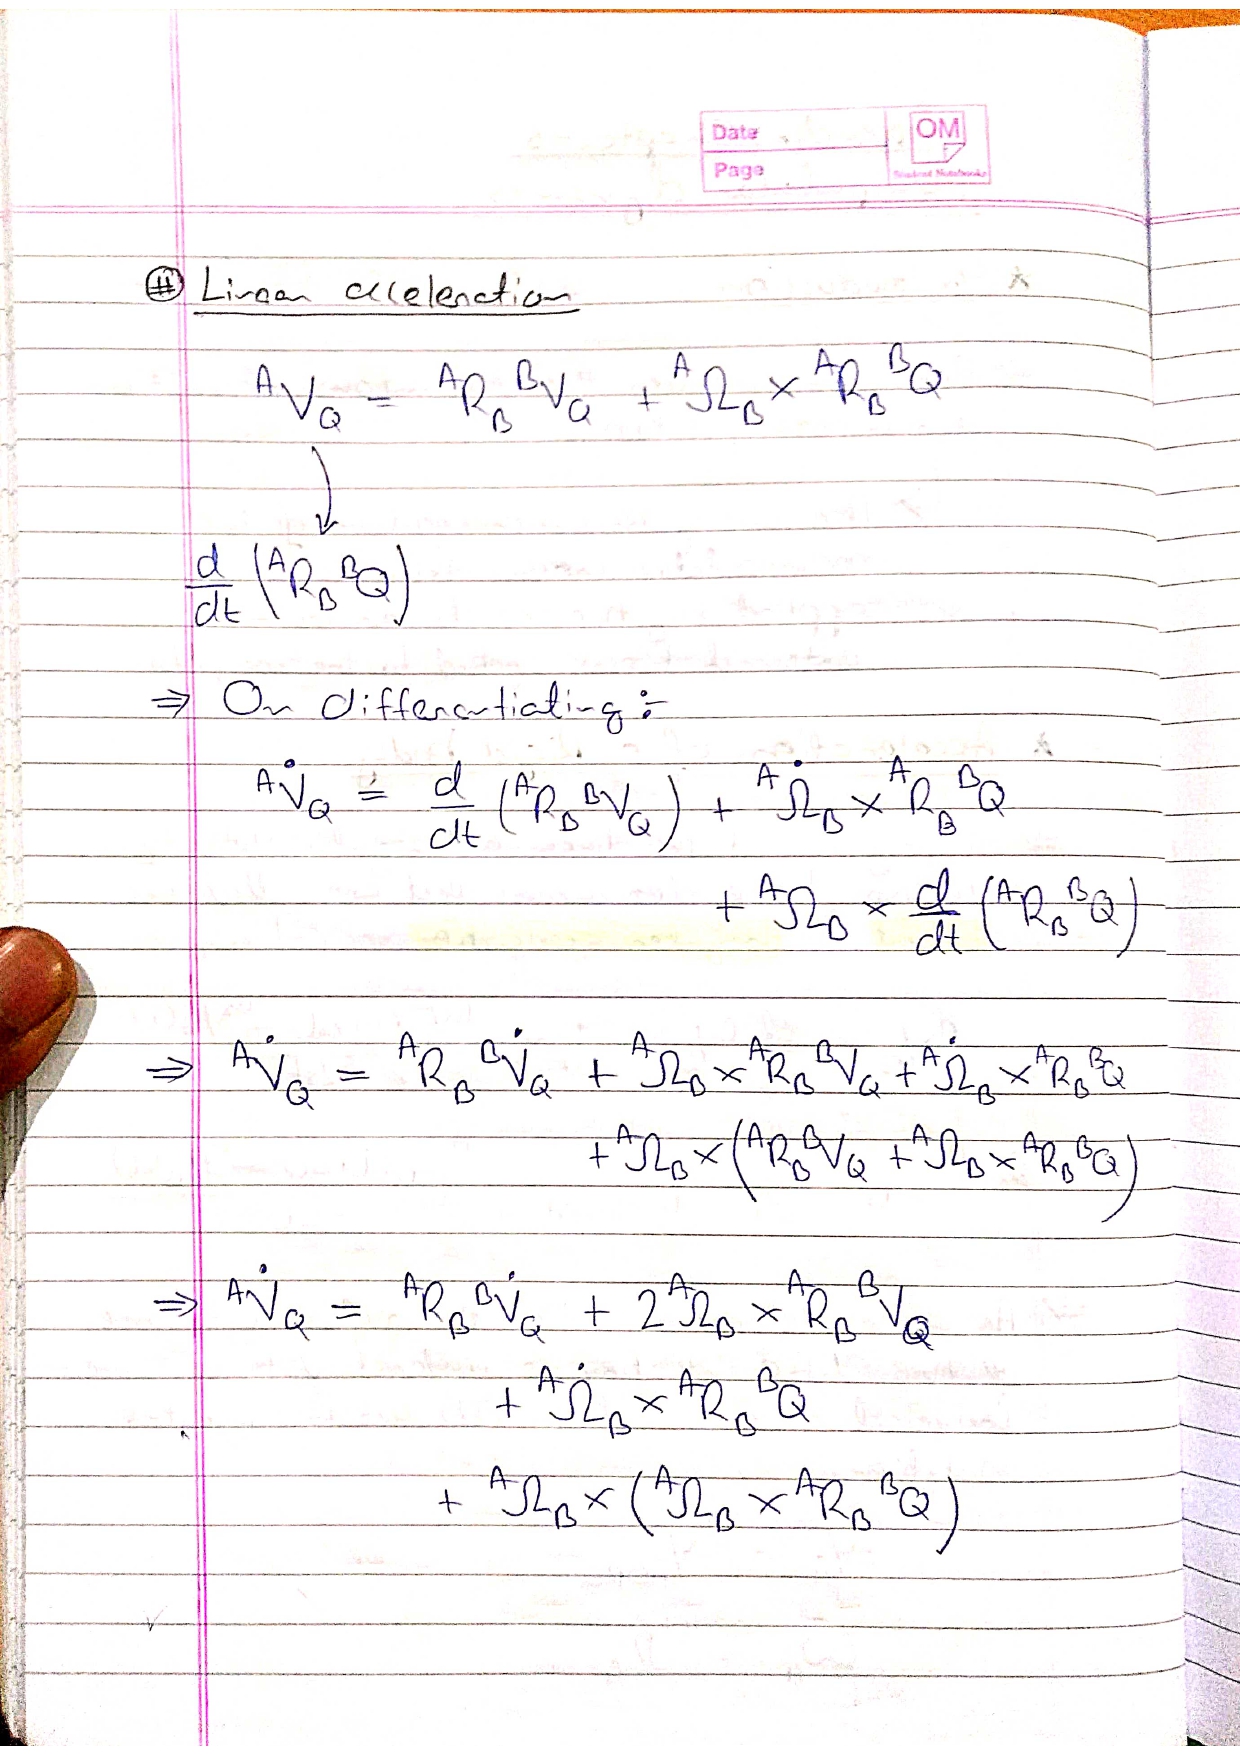 Date
OM
Page
Student Notebooks
# Linear acceleration
ᴬV_Q = ᴬR_B ᴮV_Q + ᴬΩ_B × ᴬR_B ᴮQ
d/dt (ᴬR_B ᴮQ)
⇒ On differentiating :-
ᴬV̇_Q = d/dt (ᴬR_B ᴮV_Q) + ᴬΩ̇_B × ᴬR_B ᴮQ
+ ᴬΩ_B × d/dt (ᴬR_B ᴮQ)
⇒ ᴬV̇_Q = ᴬR_B ᴮV̇_Q + ᴬΩ_B × ᴬR_B ᴮV_Q + ᴬΩ̇_B × ᴬR_B ᴮQ
+ ᴬΩ_B × (ᴬR_B ᴮV_Q + ᴬΩ_B × ᴬR_B ᴮQ)
⇒ ᴬV̇_Q = ᴬR_B ᴮV̇_Q + 2 ᴬΩ_B × ᴬR_B ᴮV_Q
+ ᴬΩ̇_B × ᴬR_B ᴮQ
+ ᴬΩ_B × (ᴬΩ_B × ᴬR_B ᴮQ)